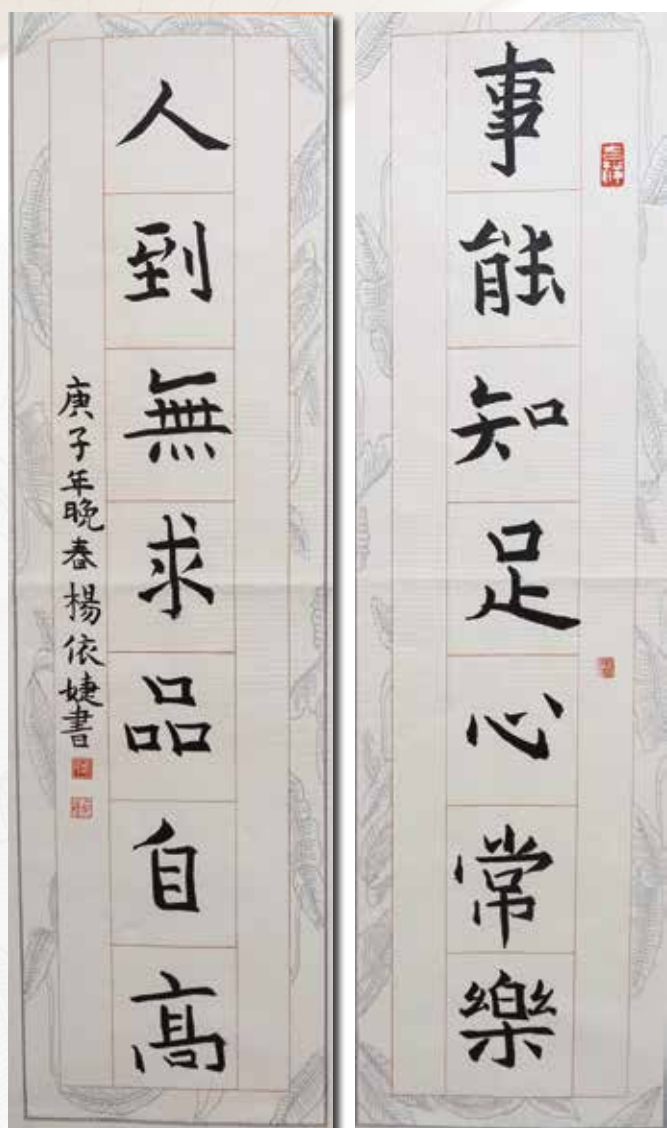 事能知足心常樂
人到無求品自高
庚子年晚春楊依婕書